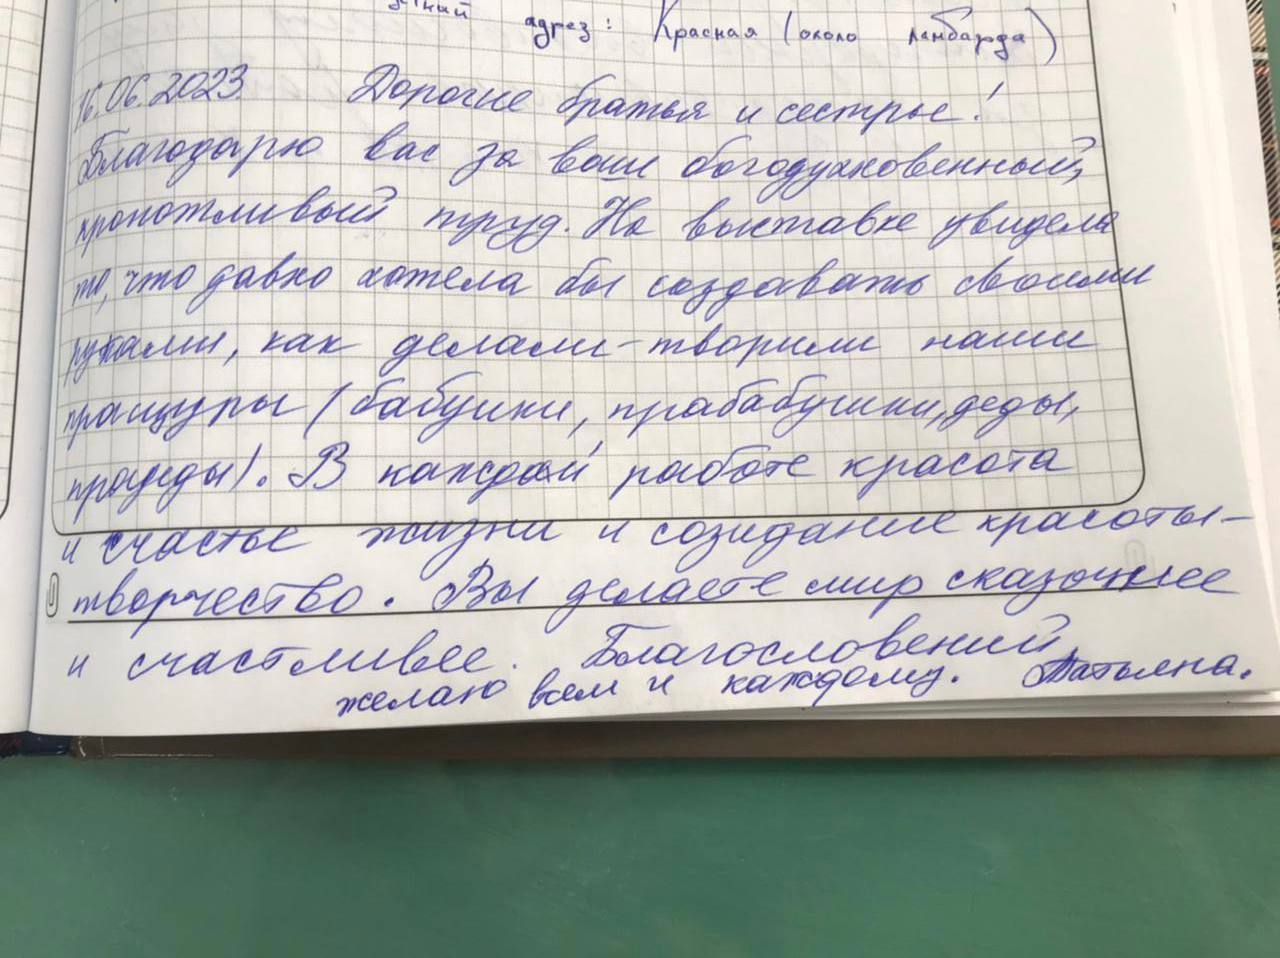 адрез: Красная (около ломбарда)
16.06.2023 Дорогие братья и сестры!
Благодарю вас за ваш богодухновенный,
кропотливый труд. На выставке увидела
то, что давно хотела бы создавать своими
руками, как делали-творили наши
пращуры (бабушки, прабабушки, деды,
прадеды). В каждой работе красота
и счастье жизни и созидание красоты-
творчество. Вы делаете мир сказочнее
и счастливее. Благословений
желаю всем и каждому. Татьяна.